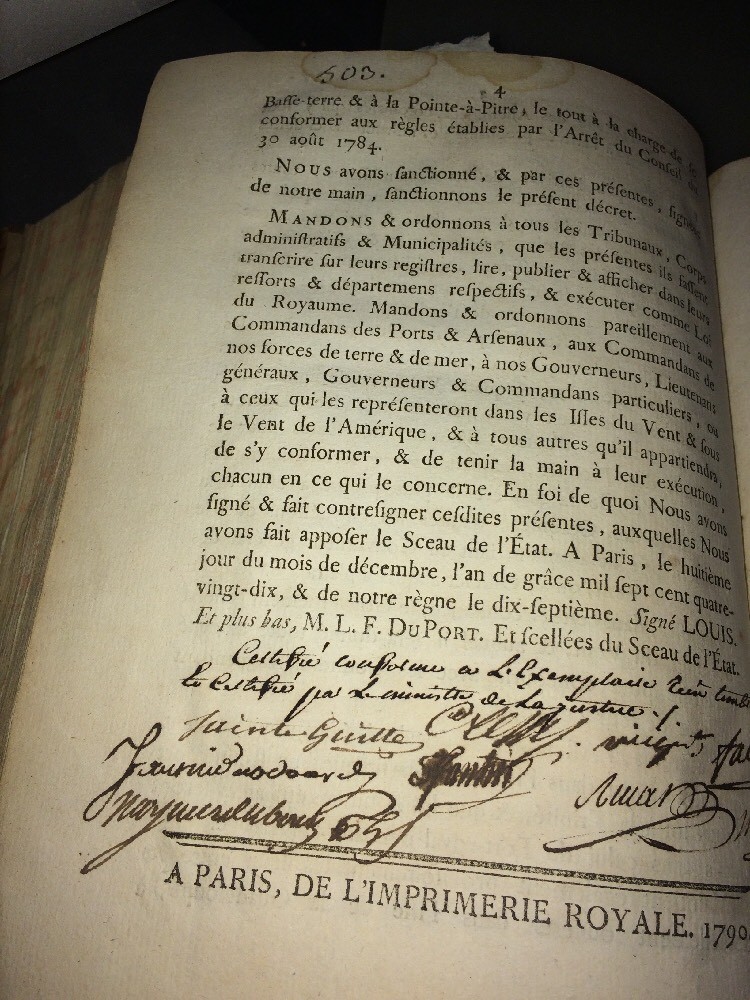 503.
4
Baſſe-terre & à la Pointe-à-Pitre, le tout à la charge de ſe
conformer aux règles établies par l'Arrêt du Conſeil du
30 août 1784.
NOUS avons ſanctionné, & par ces préſentes, ſignées
de notre main, ſanctionnons le préſent décret.
MANDONS & ordonnons à tous les Tribunaux, Corps
adminiſtratifs & Municipalités, que les préſentes ils faſſent
tranſcrire ſur leurs regiſtres, lire, publier & afficher dans leurs
reſſorts & départemens reſpectifs, & exécuter comme Loi
du Royaume. Mandons & ordonnons pareillement aux
Commandans des Ports & Arſenaux, aux Commandans de
nos forces de terre & de mer, à nos Gouverneurs, Lieutenans
généraux, Gouverneurs & Commandans particuliers, ou
à ceux qui les repréſenteront dans les Iſles du Vent & ſous
le Vent de l'Amérique, & à tous autres qu'il appartiendra,
de s'y conformer, & de tenir la main à leur exécution,
chacun en ce qui le concerne. En foi de quoi Nous avons
ſigné & fait contreſigner ceſdites préſentes, auxquelles Nous
avons fait appoſer le Sceau de l'État. A Paris, le huitième
jour du mois de décembre, l'an de grâce mil ſept cent quatre-
vingt-dix, & de notre règne le dix-ſeptième. Signé LOUIS.
Et plus bas, M. L. F. DUPORT. Et ſcellées du Sceau de l'État.
Certifié conforme a L'Exemplaire
Certifié par Le ministre de La justice
A PARIS, DE L'IMPRIMERIE ROYALE. 1790.